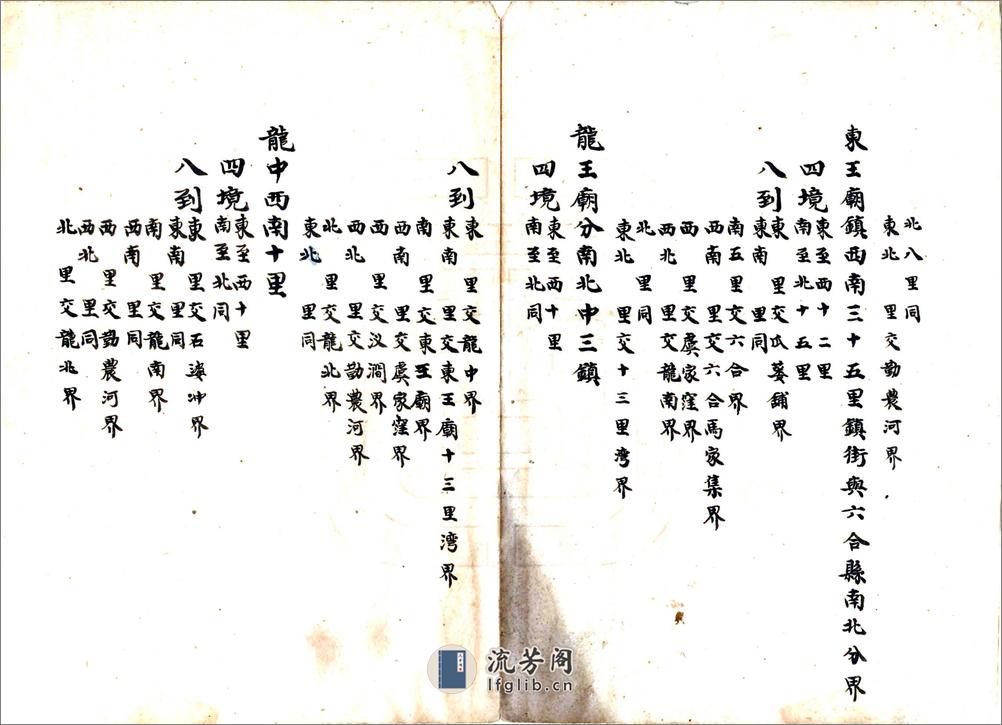 北八里同
東北　里交勸農河界
東王廟鎮西南三十五里鎮街與六合縣南北分界
四境東至西十二里
南至北十五里
八到東　里交瓜蔞鋪界
東南　里同
南五里交六合界
西南　里交六合馬家集界
西　里交虞家窪界
西北　里交龍南界
北　里同
東北　里交十三里灣界
龍王廟分南北中三鎮
四境東至西十里
南至北同
八到東　里交龍中界
東南　里交東王廟十三里灣界
南　里交東王廟界
西南　里交虞家窪界
西　里交汊澗界
西北　里交勸農河界
北　里交龍北界
東北　里同
龍中西南十里
四境東至西十里
南至北同
八到東　里交石婆冲界
東南　里同
南　里交龍南界
西南　里同
西　里交勸農河界
西北　里同
北　里交龍北界
流芳阁
lfglib.cn